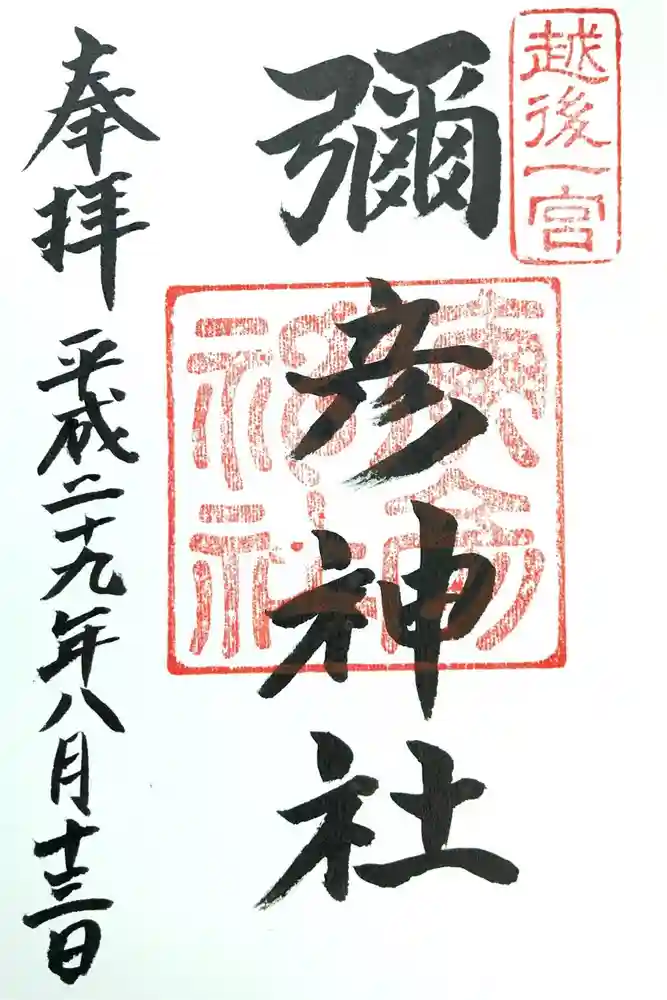 越後一宮
彌彦神社
奉拝
平成二十九年八月十三日